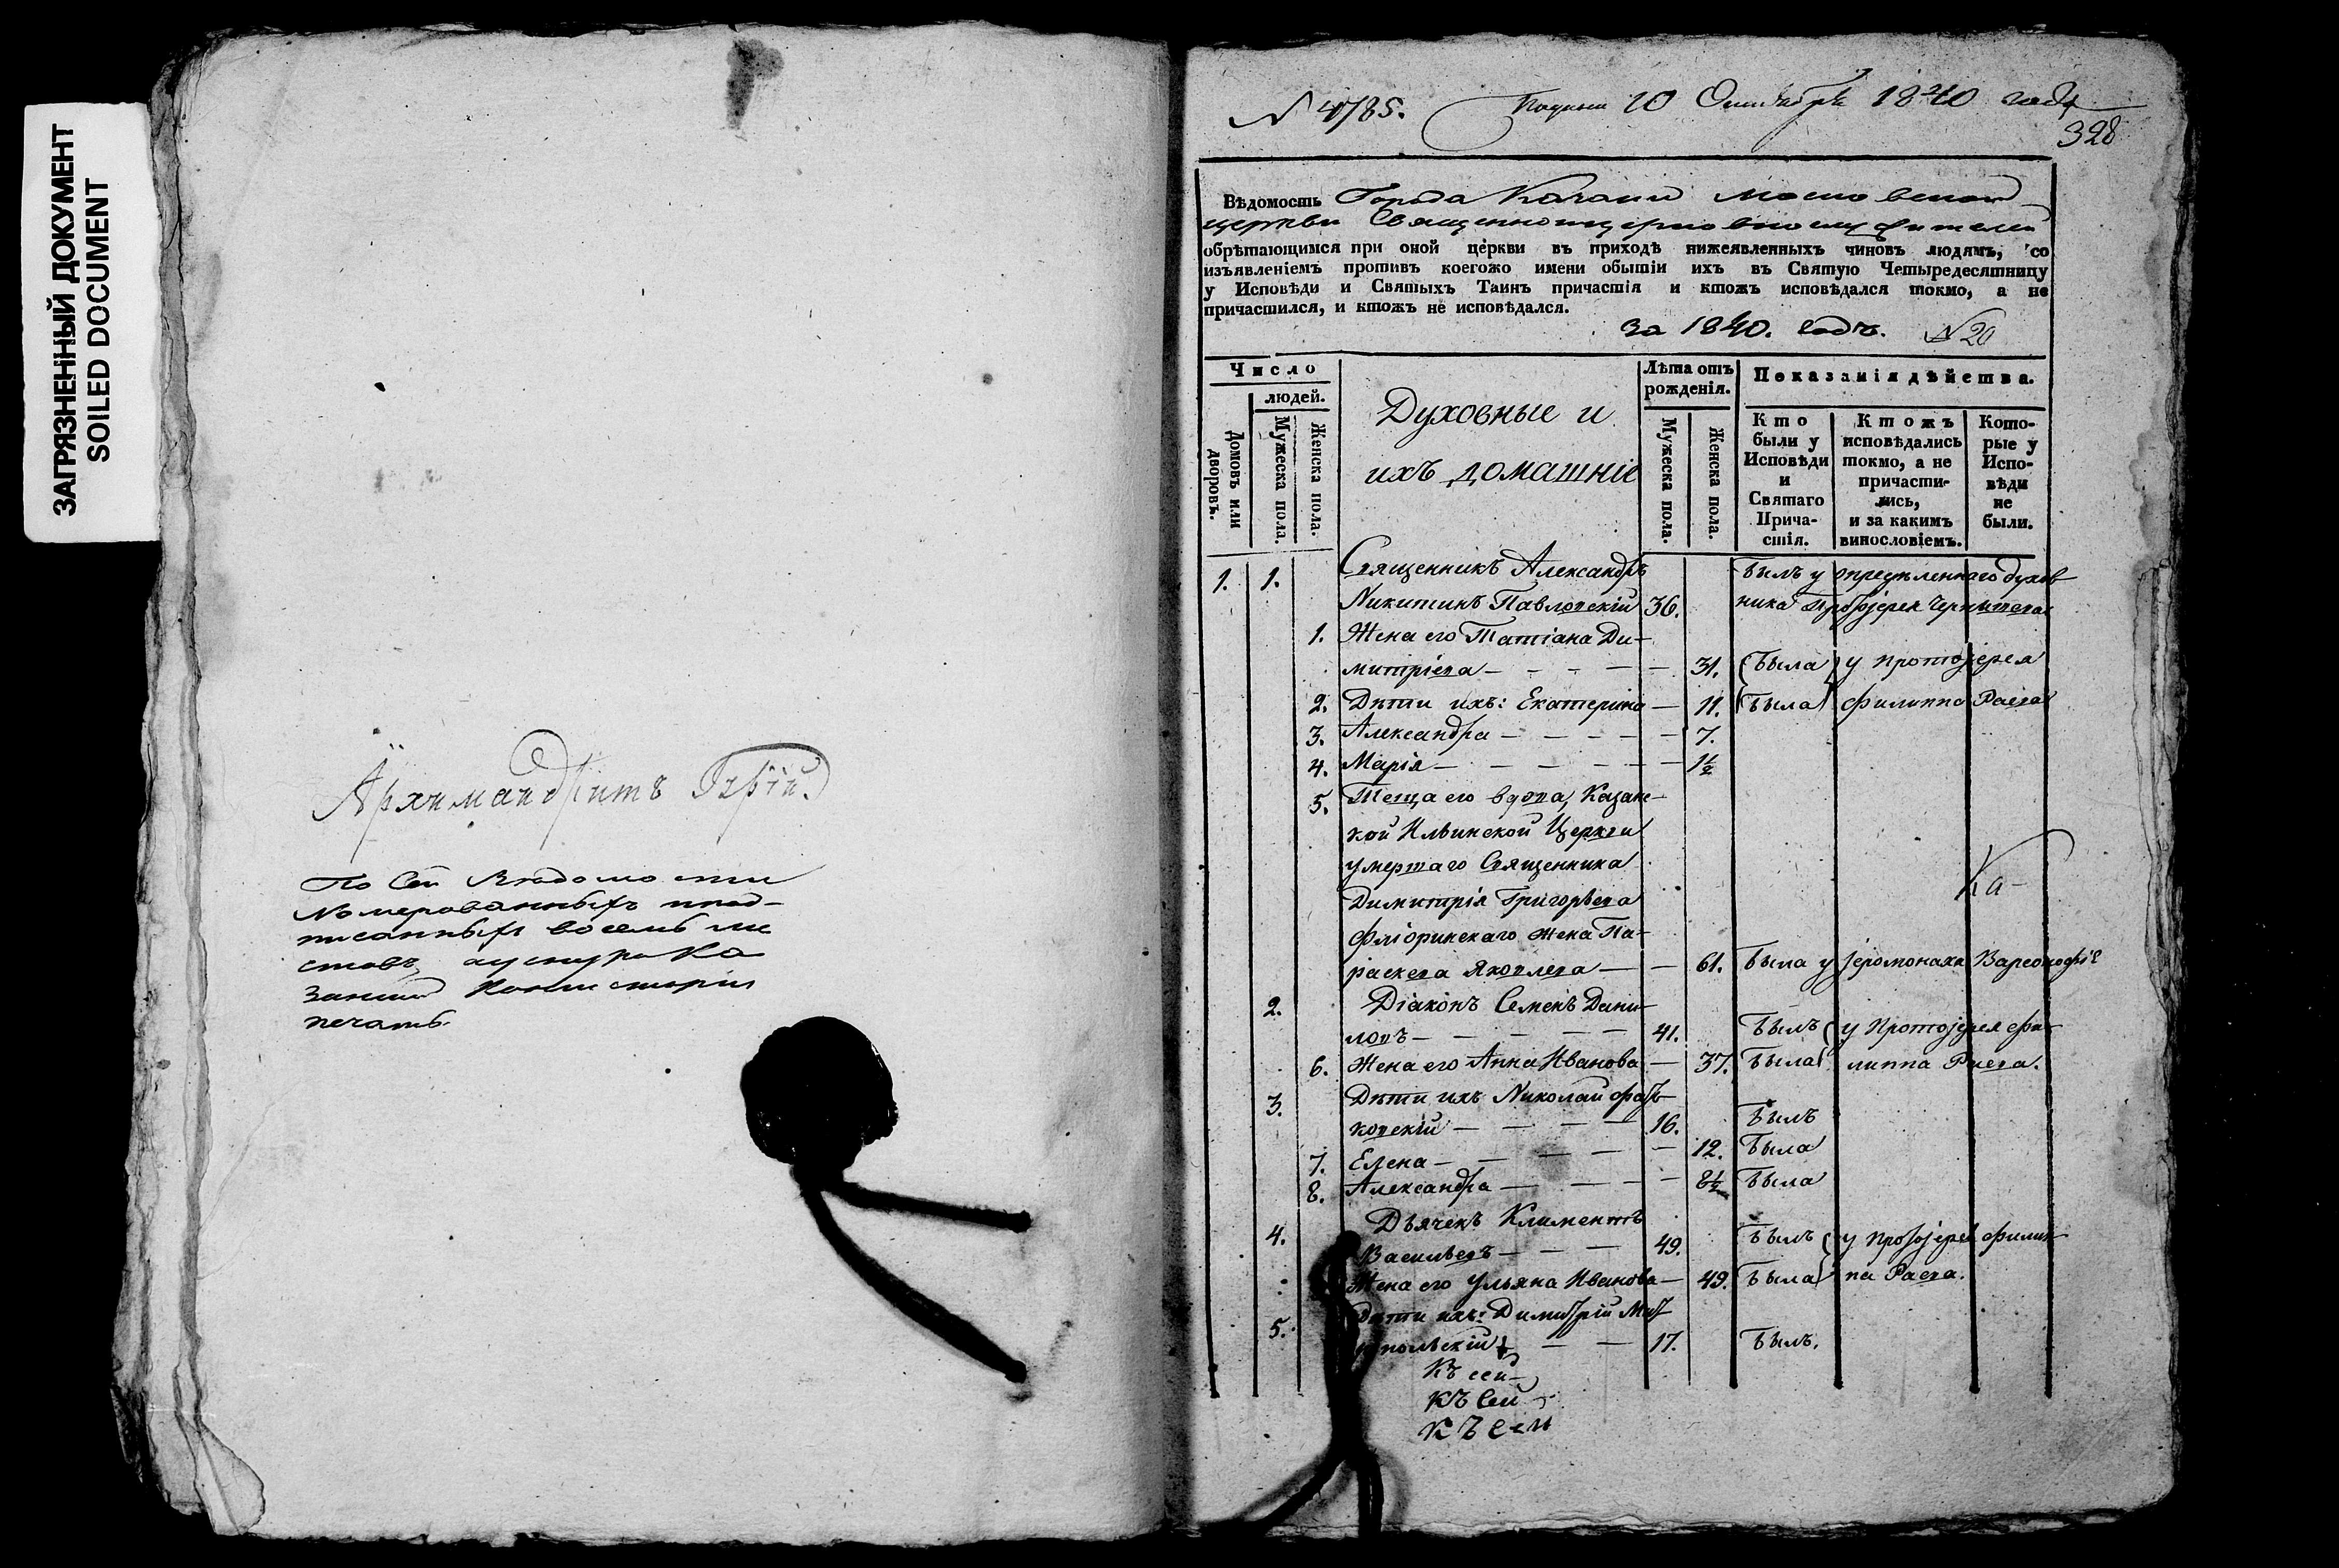 ЗАГРЯЗНЕННЫЙ ДОКУМЕНТ
SOILED DOCUMENT
Архимандритъ Гурій.
По Сей Вѣдомости
Номерованныхъ и под-
писанныхъ восемь ли
стовъ, а у снурка Ка
занской Консисторіи
печать.
N 4785.
Подана 10 Октября 1840 года
328
Вѣдомость Города Казани Московской
церкви Священноцерковнослужители
обрѣтающимся при оной церкви въ приходѣ нижеявленныхъ чиновъ людямъ, со
изъявленіемъ противъ коегожо имени обытіи ихъ въ Святую Четыредесятницу
у Исповѣди и Святыхъ Таинъ причастія и ктожъ исповѣдался токмо, а не
причастился, и ктожъ не исповѣдался.
за 1840. годъ. N 20
Число
людей.
Домовъ или дворовъ.
Мужеска пола.
Женска пола.
Духовные и
ихъ домашніе
Лѣта отъ
рожденія.
Мужеска пола.
Женска пола.
Показанія дѣйства.
Кто
были у
Исповѣди
и
Святаго
Прича-
стія.
Ктожъ
исповѣдались
токмо, а не
причасти-
лись,
и за какимъ
винословіемъ.
Кото-
рые у
Испо-
вѣди
не
были.
1. 1. Священникъ Александръ Былъ у опредѣленнаго духов
Никитинъ Павловскій 36. ника Протоіерея
1. Жена его Татіана Ди-
митріева 31. Была у протоіерея
2. Дѣти ихъ: Екатерина 11. Была Филиппа Раева
3. Александра 7.
4. Марія 1½
5. Теща его вдова, Казанс-
кой Ильинской Церкви
умертаго Священника
Ка-
Димитрія Григорьева
Фліоринскаго жена Па-
раскева Яковлева 61. Была у іеромонаха
2. Діаконъ Семенъ Дани-
ловъ 41. Былъ у Протоіерея Фи-
6. Жена его Анна Иванова 37. Была липпа Раева.
3. Дѣти ихъ Николай
ковскій 16. Былъ
7. Елена 12. Была
8. Александра 8½ Была
4. Дьячекъ Климентъ
Васильевъ 49. Былъ у протоіерея Филип-
Жена его Ульяна Иванова 49. Была па Раева.
5. Дѣти ихъ: Димитрій
польскій 17. Былъ.
Къ сей
Къ Сей
Къ Сей